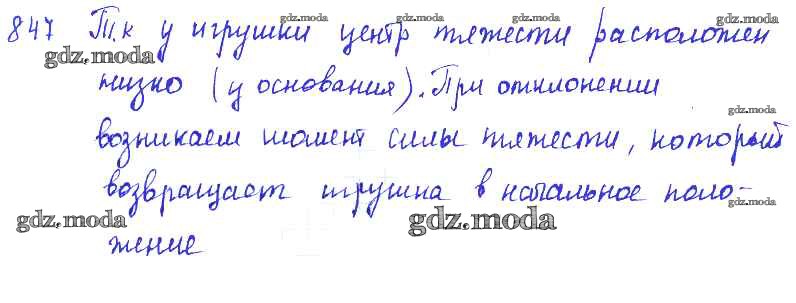 847 Т.к у игрушки центр тяжести расположен
низко (у основания). При отклонении
возникает момент силы тяжести, который
возвращает игрушка в начальное поло-
жение
gdz.moda
gdz.moda
gdz.moda
gdz.moda
gdz.moda
gdz.moda
gdz.moda
gdz.moda